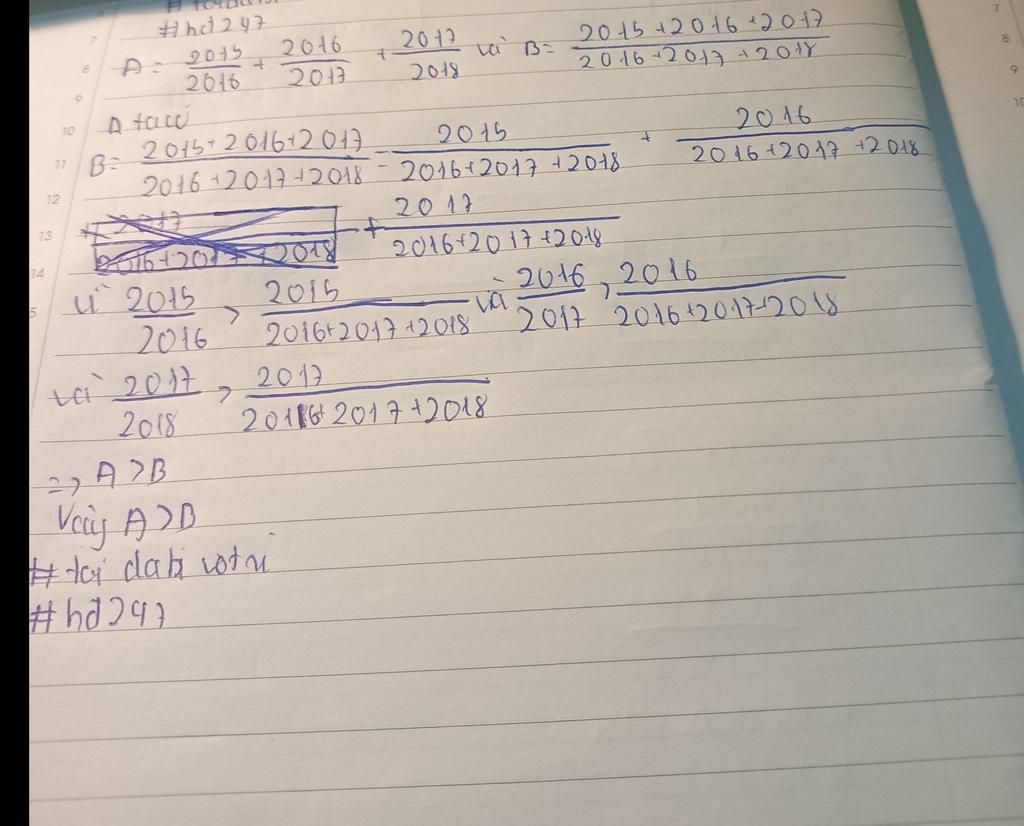 #hd247
A = 2015/2016 + 2016/2017 + 2017/2018 và B = 2015+2016+2017/2016+2017+2018
A ta có
B = 2015+2016+2017/2016+2017+2018 = 2015/2016+2017+2018 + 2016/2016+2017+2018
+ 2017/2016+2017+2018 + 2017/2016+2017+2018
Vì 2015/2016 > 2015/2016+2017+2018 và 2016/2017 > 2016/2016+2017+2018
và 2017/2018 > 2017/2016+2017+2018
=> A > B
Vậy A > B
#
#hd247